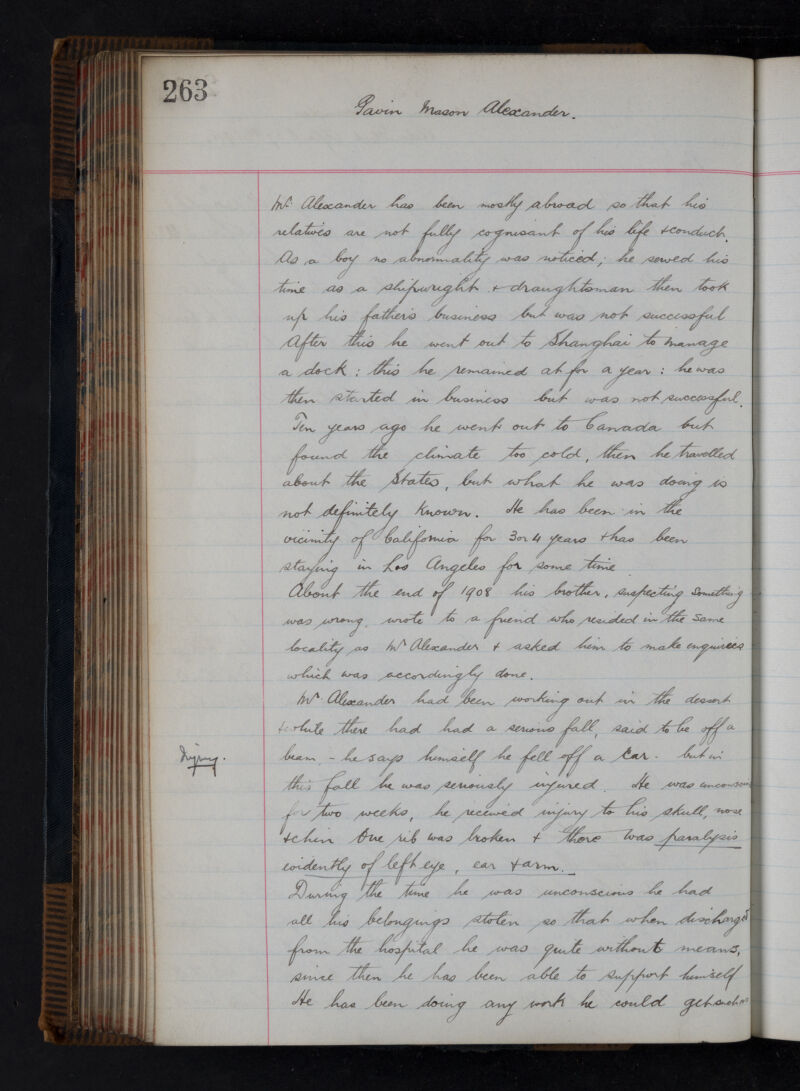 263
Gavin Mason Alexander.
Mr. Alexander has been mostly abroad so that his
relatives are not fully cognisant of his life & conduct.
As a boy no abnormality was noticed; he served his
time as a shipwright & draughtsman then took
up his father's business but was not successful
After this he went out to Shanghai to manage
a dock: this he remained at for a year: he was
then started in business but was not successful.
Ten years ago he went out to Canada but
found the climate too cold, then he travelled
about the States, but what he was doing is
not definitely known. He has been in the
vicinity of California for 3 or 4 years & has been
staying in Los Angeles for some time
About the end of 1908 his brother, suspecting something
was wrong, wrote to a friend who resided in the same
locality as Mr Alexander & asked him to make enquiries
which was accordingly done.
Mr Alexander had been working out in the desert
& while there had had a serious fall, said to be off a
Injury.
beam - he says himself he fell off a car. but in
this fall he was seriously injured. He was
for two weeks, he received injury to his skull, nose
& chin One rib was broken & there was paralysis
evidently of left eye, ear & arm.
During the time he was unconscious he had
all his belongings stolen so that when discharged
from the hospital he was quite without means,
since then he has been able to support himself
He has been doing any work he could get such as